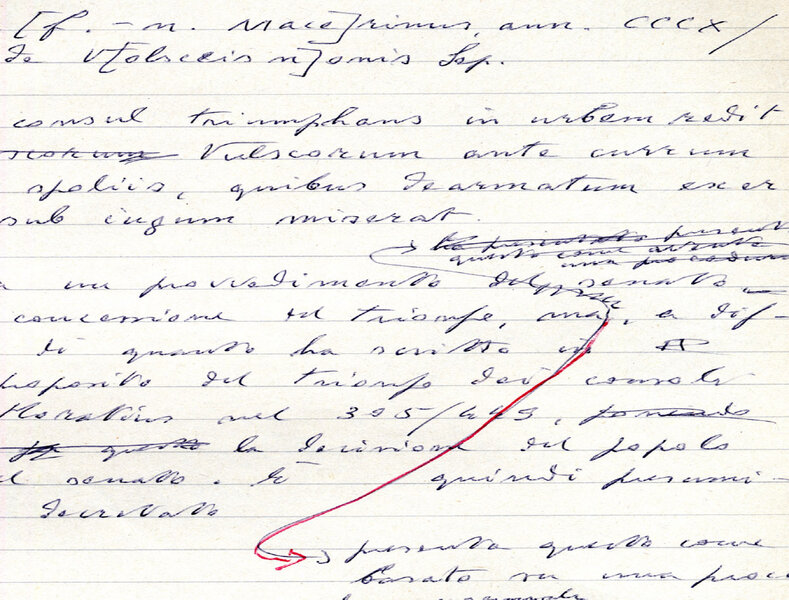 [f. - n. Mace]rinus, ann. CCCX/
de V[olsceis n]onis Sep.
consul triumphans in urbem redit
scorum Vulscorum ante currum
spoliis, quibus dearmatum exer
sub iugum miserat.
presentato present
questo come avente
una procedura
un provvedimento del senato
concessione del trionfo, ma, a dif-
di quanto ha scritto in
proposito del trionfo dei consoli
Horatius nel 305/449, ponendo
questo la decisione del popolo
senato. È quindi presumi-
decretato
presenta questo come
basato su una proce